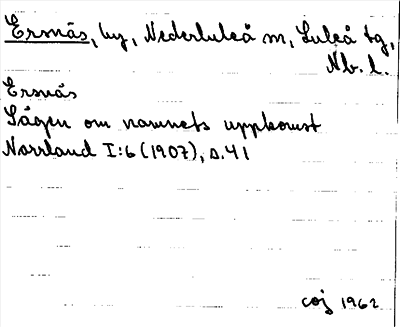 Ersnäs, by, Nederluleå sn, Luleå tg,
Nb. l.
Ersnäs
Sägen om namnets uppkomst
Norrland I:6 (1907), s. 41
coj 1962